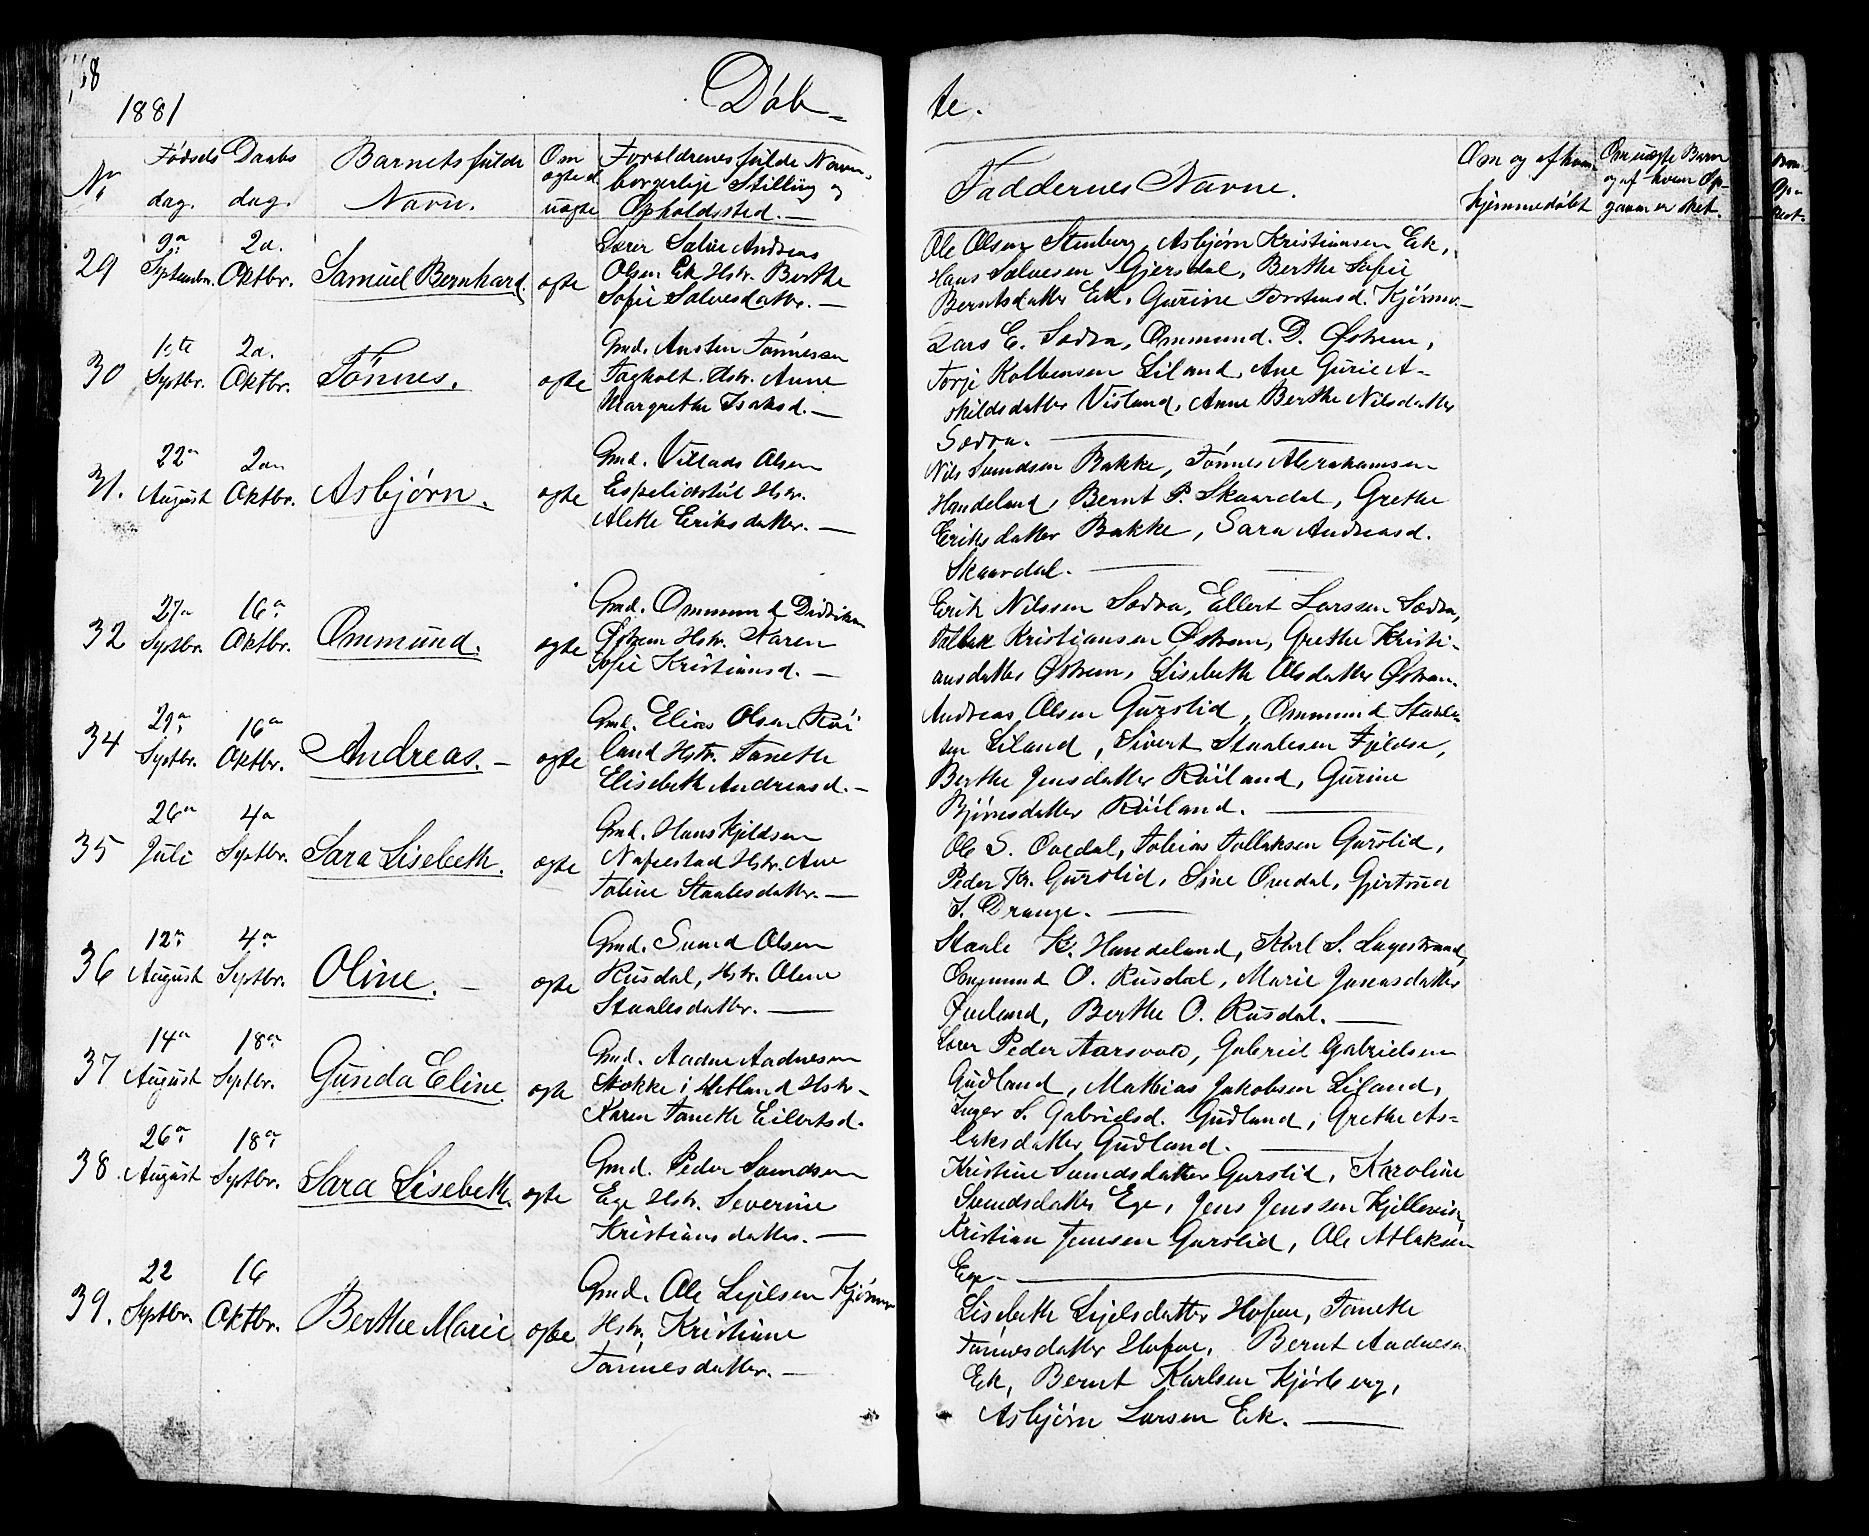 1881
Døb=
te.
No
Fødsels
dag.
Daabs
dag.
Barnets fulde
Navn.
Om
ægte el.
uægte
Forældrenes fulde Navn,
borgerlige Stilling og
Opholdssted. —
Faddernes Navne.
Om og af hvem
hjemmedøbt
Om uægte Barn
og af hvem Op-
gaven er sket.
29
9de
Septembr.
2d.
Oktbr.
Samuel Bernhard
ægte
Lærer Salve Andreas
Olsen Eik Hstr. Berthe
Sofie Salvesdatter. —
Ole Olsen Stenberg, Asbjørn Kristiansen Eik,
Hans Salvesen Gjersdal, Berthe Sofie
Berntsdatter Eik, Gurine Torstensd. Kjørmo —
30
1ste
Septbr.
2d.
Oktbr.
Tønnes.
ægte
Gmd. Austen Tønnesen
Fagholt. Hstr. Anne
Margrethe Isaksd. —
Lars E. Sædra, Ommund D. Østrem,
Torje Kolbensen Liland, Ane Gurie A-
skildsdatter Visland, Anne Berthe Nilsdatter
Sædra. —
31.
22de
August
2den
Oktbr.
Asbjørn.
ægte
Gmd. Villads Olsen
Espelidstøl Hstr.
Alette Eriksdatter. —
Nils Svendsen Bakke, Tønnes Abrahamsen
Handeland, Bernt P. Skaardal, Grethe
Eriksdatter Bakke, Sara Andreasd.
Skaardal. —
32
27de
Septbr.
16de
Oktbr.
Ommund.
ægte
Gmd. Ommund Didriksen
Østrem Hstr. Karen
Sofie Kristiansd. —
Erik Nilssen Sædra, Ellert Larssen Sædra,
Kristiansen Østrem, Grethe Kristi-
ansdatter Østrem, Lisebeth Olsdatter Østrem.
34
29de
Septbr.
16de
Oktbr.
Andreas. —
ægte
Gmd. Elias Olsen Røi
land Hstr. Tanethe
Elisebeth Andreasd. —
Andreas Olsen Gurslid, Ommund Staale
sen Liland, Sivert Staalesen Fjeldse,
Berthe Jensdatter Røiland, Gurine
Bjørnsdatter Røiland. —
35
26de
Juli
4de
Septbr.
Sara Lisebeth.
ægte
Gmd. Hans Kjeldsen
Nafrestad Hstr. Ane
Tobine Staalesdatter. —
Ole S. Ovedal, Tobias Tollaksen Gurslid,
Peder Kr. Gurslid, Sine Ovedal, Gjertrud
S. Drange. —
36
12te
August
4de
Septbr.
Oline. —
ægte
Gmd. Svend Olsen
Rusdal, Hstr. Olene
Staalesdatter. —
Staale K. Handeland, Karl S. Lagestrand,
Ommund O. Rusdal, Marie Jonasdatter
Øveland, Berthe O. Rusdal. —
37
14de
August
18de
Septbr.
Gunda Eline.
ægte
Gmd. Aadne Aadnesen
Stokke i Hetland Hstr.
Karen Tanethe Eilertsd.
Lærer Peder Aarsvold, Gabriel Gabrielsen
Gudland, Mathias Jakobsen Liland,
Inger S. Gabrielsd. Gudland, Grethe As-
laksdatter Gudland. —
38
26de
August
18de
Septbr.
Sara Lisebeth.
ægte
Gmd. Peder Svendsen
Ege Hstr. Severine
Kristiansdatter. —
Kristine Svendsdatter Gurslid, Karoline
Svendsdatter Ege, Jens Jenssen Kjellevig,
Kristian Jensen Gurslid, Ole Atlaksen
Ege —
39.
22
Septbr.
16
Oktbr.
Berthe Marie
ægte
Gmd. Ole Lejelsen Kjørmo
Hstr. Kristiane
Tønnesdatter. —
Lisebeth Lejelsdatter Hofen, Tanethe
Tønnesdatter Hofen, Bernt Aadnesen
Eik, Bernt Karlsen Kjørberg,
Asbjørn Larsen Eik. —